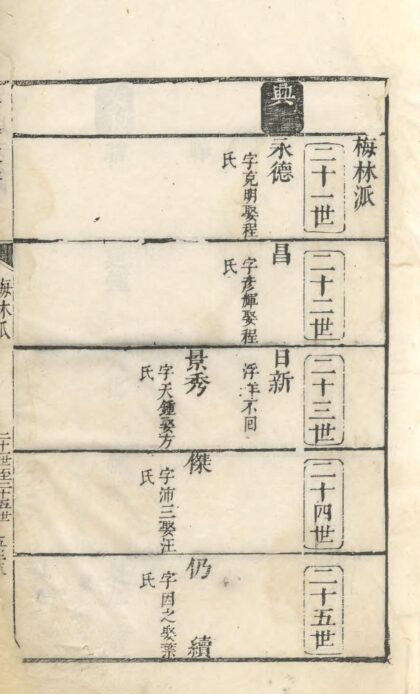 梅林派
二十一世
興
永德
字克明娶程
氏
二十二世
昌
字彥輝娶程
氏
二十三世
日新
浮羊不囘
景秀
字天鍾娶方
氏
二十四世
傑
字沛三娶汪
氏
二十五世
仍續
字因之娶葉
氏
梅林派
二十一世至二十五世